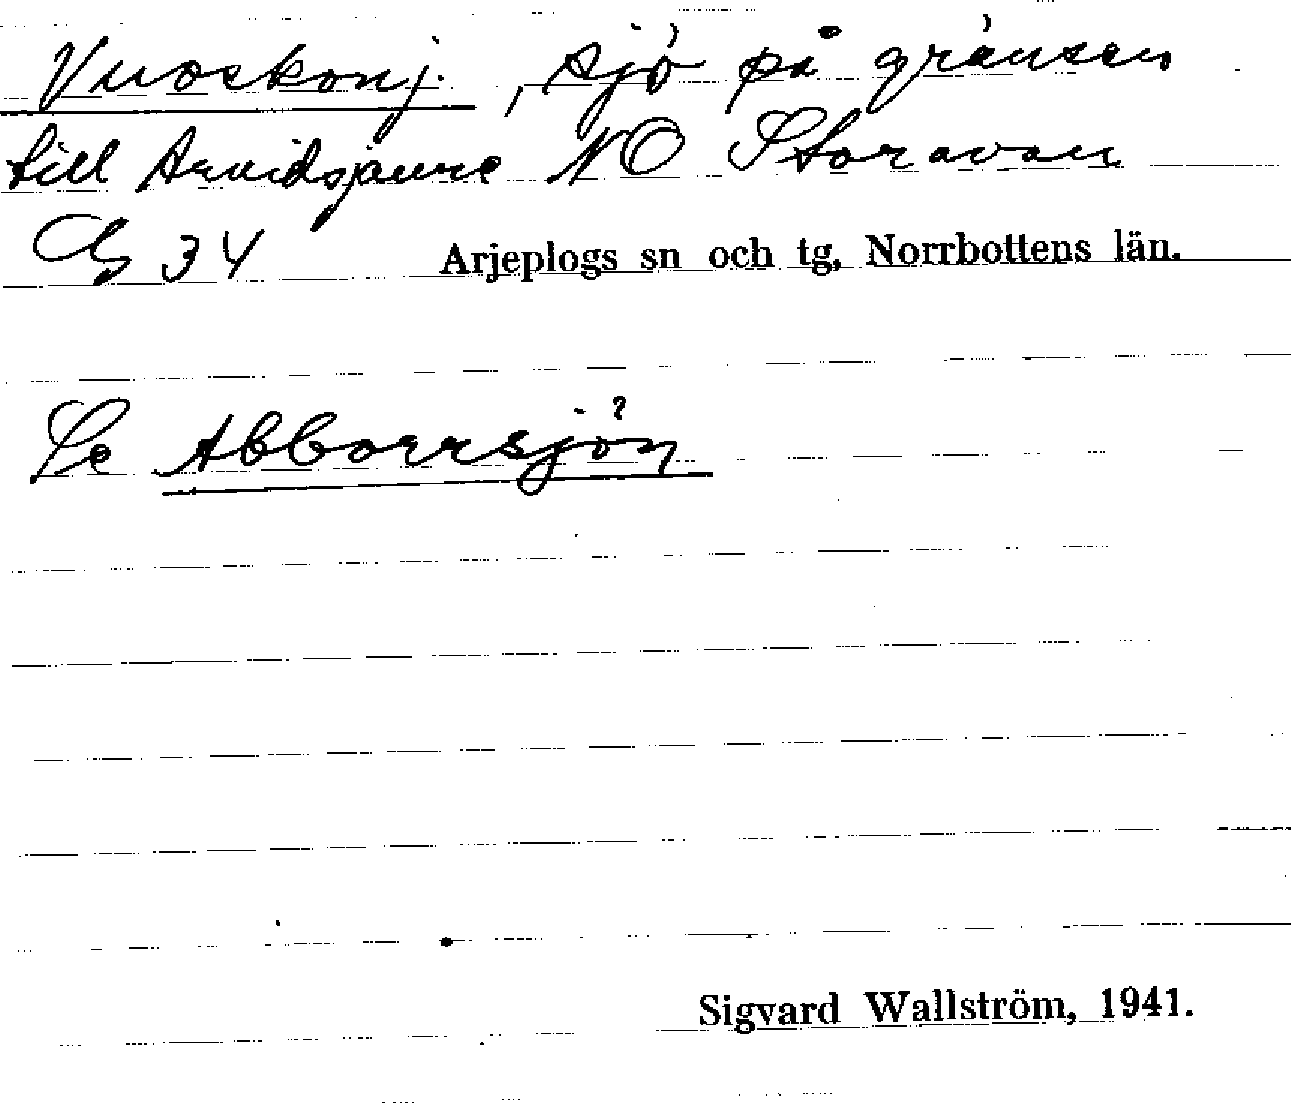 Vuoskonj., sjö på gränsen
till Arvidsjaure NO Storavan
34 Arjeplogs sn och tg, Norrbottens län.
Se Abborrsjön
Sigvard Wallström, 1941.